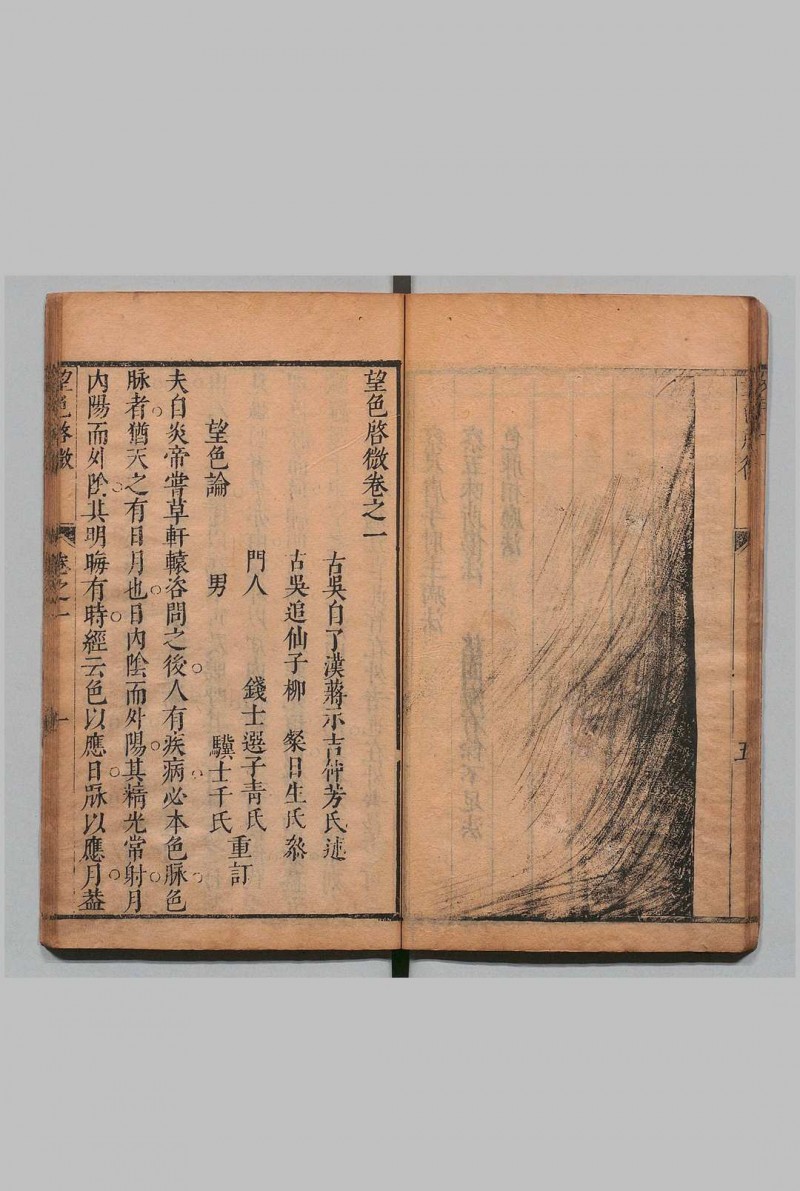 望色啓微卷之一
古吳自了漢蔣示吉仲芳氏述
古吳追仙子柳 粲日生氏叅
門人 錢士選子青氏
男 驥士千氏
重訂
望色論
夫自炎帝嘗草軒轅咨問之後人有疾病必本色脉色
脉者猶天之有日月也日內陰而外陽其精光常射月
內陽而外陰其明晦有時經云色以應日脉以應月葢
望色啓微 卷之一 一
五